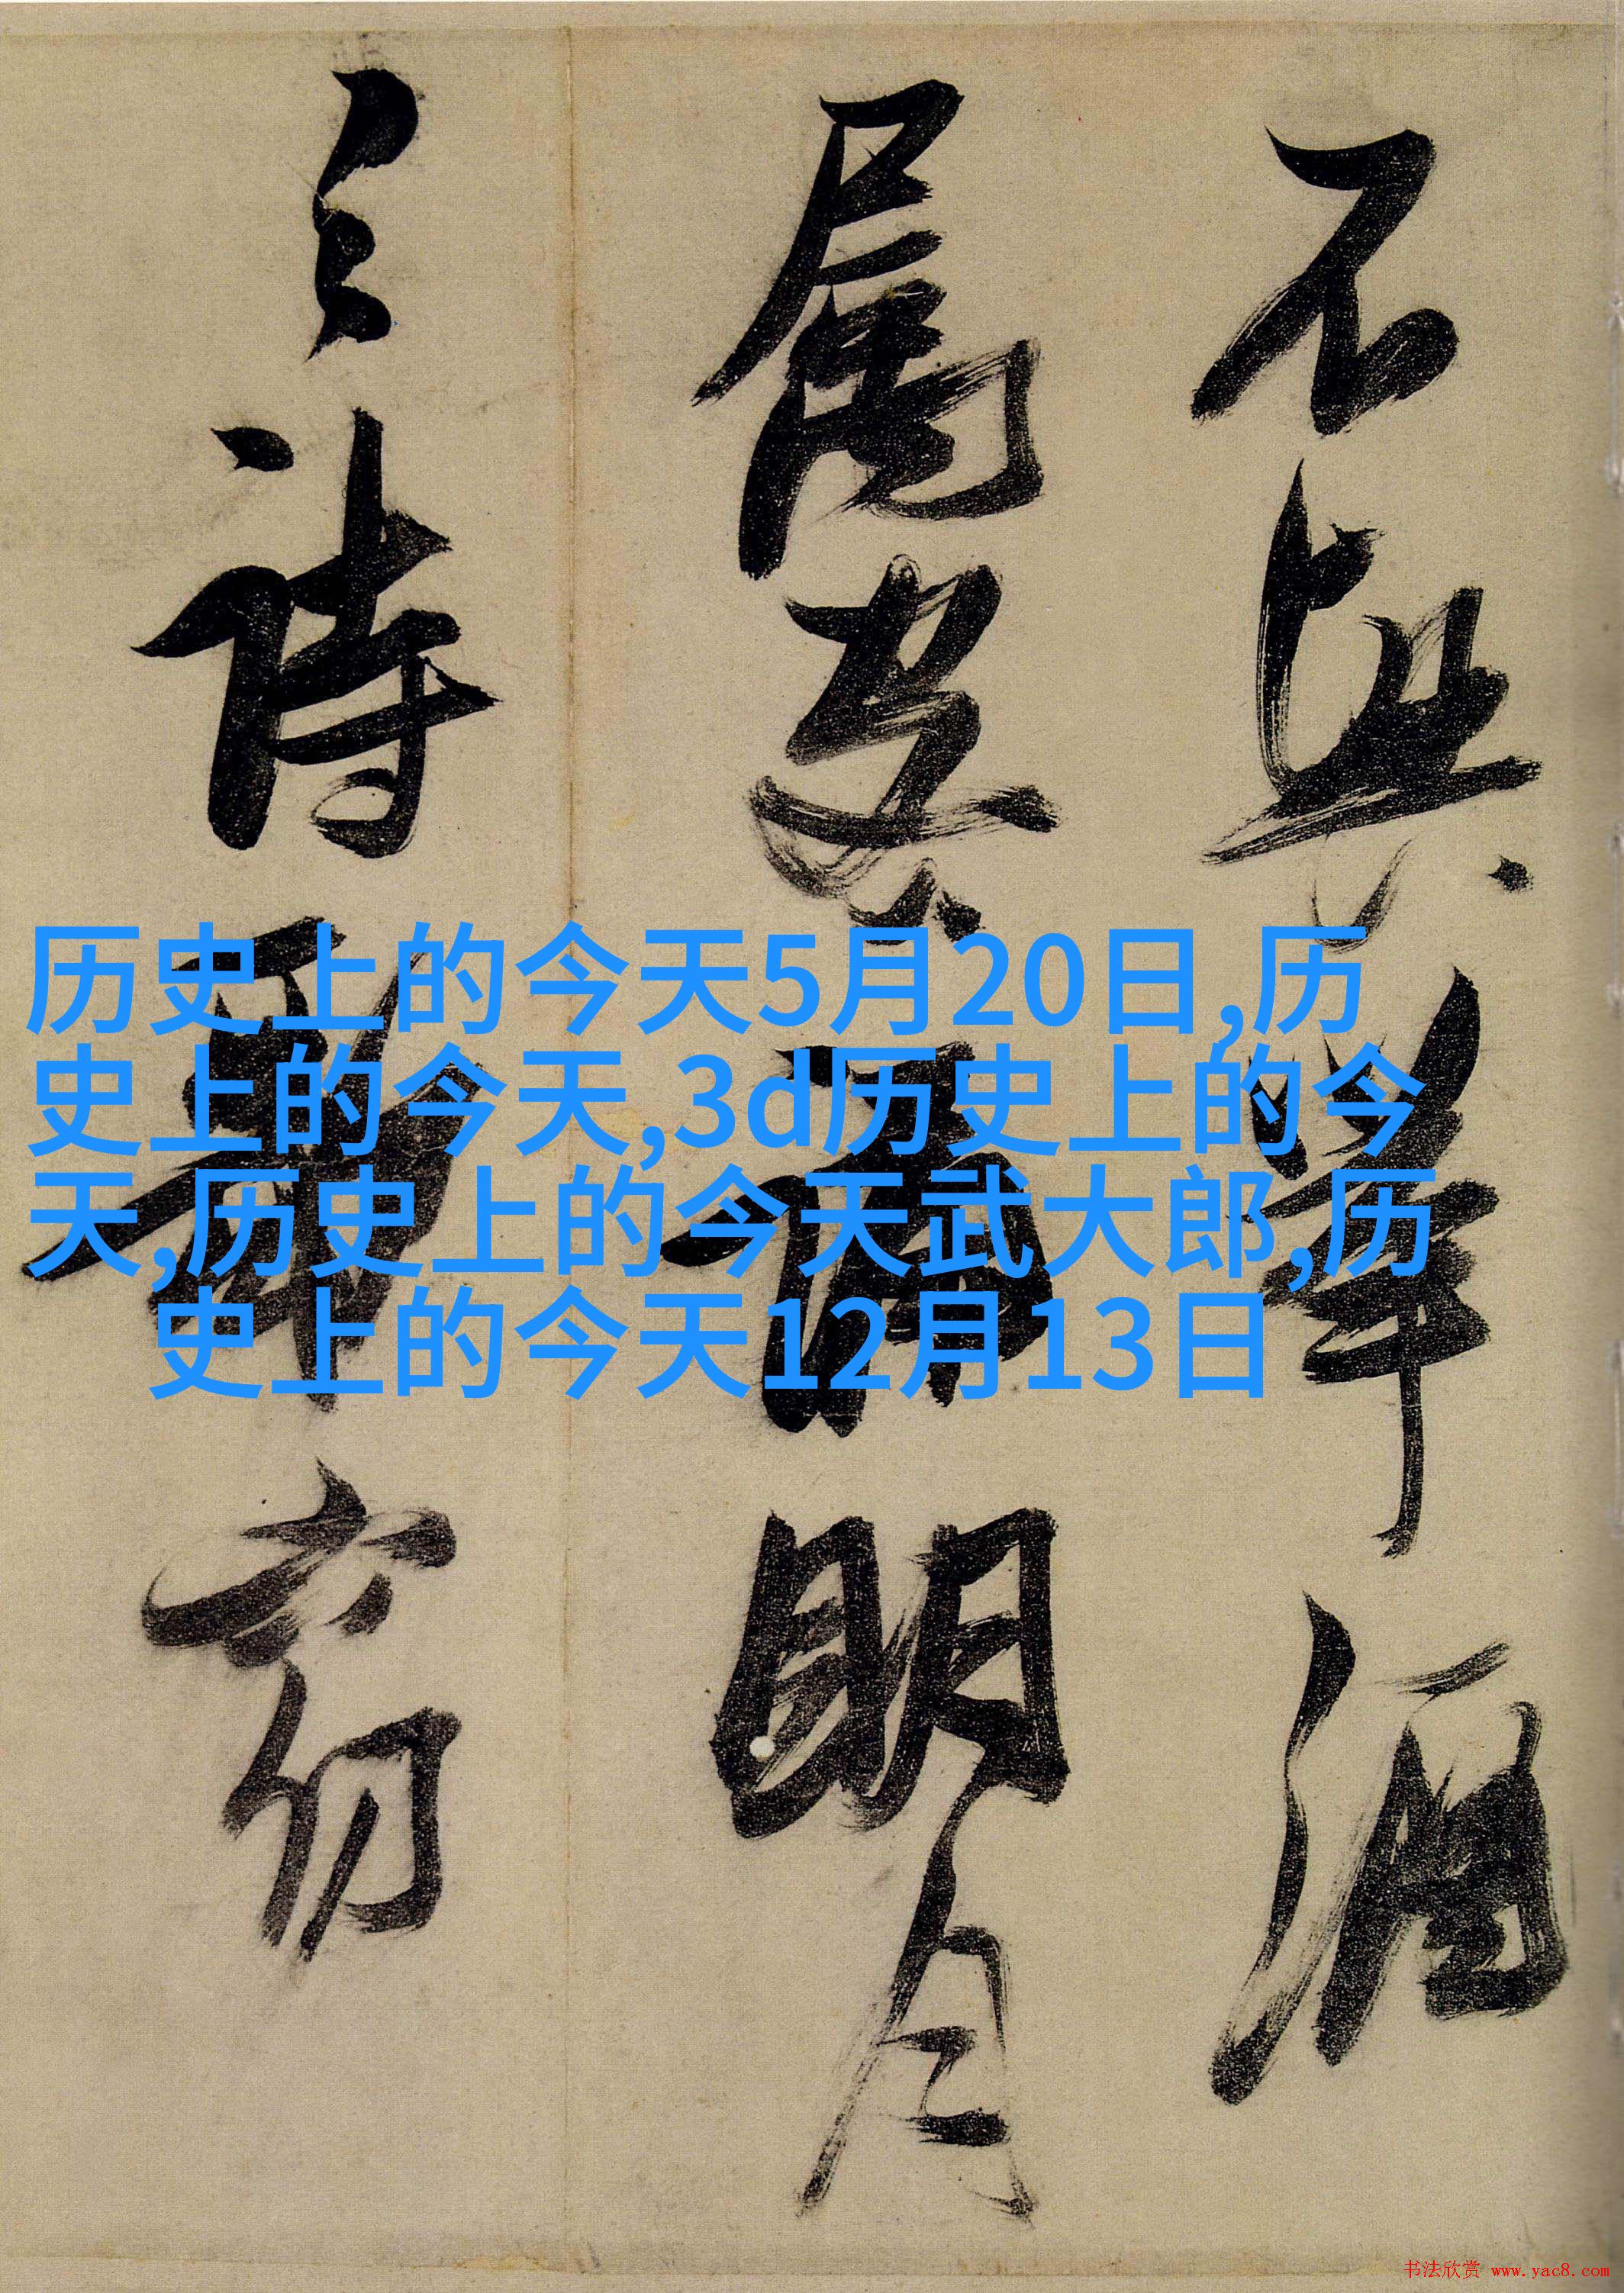 不興舉酒
屬客誦明月
之詩歌窈
历史上的今天5月20日,历
史上的今天,3d历史上的今
天,历史上的今天武大郎,历
史上的今天12月13日
书法欣赏 www.yac8.com